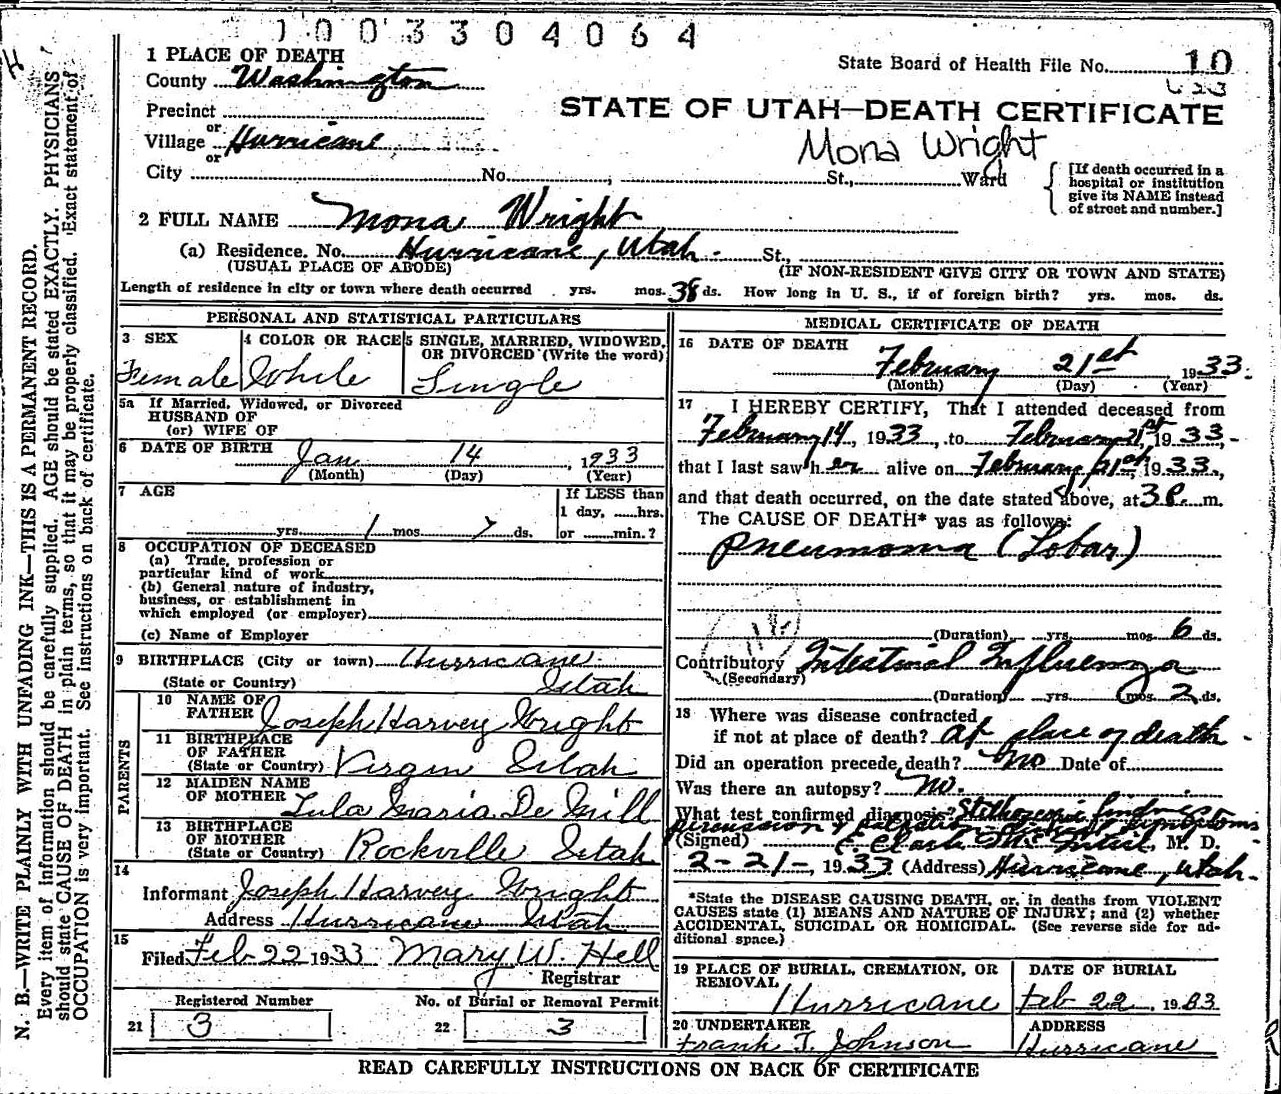 1003304064
1 PLACE OF DEATH
State Board of Health File No. 10
County Washington
Precinct
STATE OF UTAH—DEATH CERTIFICATE
or
Village Hurricane
Mona Wright
or
City No. , St., Ward
[If death occurred in a
hospital or institution
give its NAME instead
of street and number.]
2 FULL NAME Mona Wright
(a) Residence. No. Hurricane, Utah. St.,
(USUAL PLACE OF ABODE) (IF NON-RESIDENT GIVE CITY OR TOWN AND STATE)
Length of residence in city or town where death occurred yrs. mos. 38 ds. How long in U. S., if of foreign birth? yrs. mos. ds.
PERSONAL AND STATISTICAL PARTICULARS
3 SEX 4 COLOR OR RACE 5 SINGLE, MARRIED, WIDOWED,
OR DIVORCED (Write the word)
Female White Single
5a If Married, Widowed, or Divorced
HUSBAND OF
(or) WIFE OF
6 DATE OF BIRTH Jan 14, 1933
(Month) (Day) (Year)
7 AGE
If LESS than
1 day, ......hrs.
yrs. 1 mos. 7 ds. or .......min.?
8 OCCUPATION OF DECEASED
(a) Trade, profession or
particular kind of work
(b) General nature of industry,
business, or establishment in
which employed (or employer)
(c) Name of Employer
9 BIRTHPLACE (City or town) Hurricane
(State or Country) Utah
PARENTS
10 NAME OF
FATHER Joseph Harvey Wright
11 BIRTHPLACE
OF FATHER
(State or Country) Virgin Utah
12 MAIDEN NAME
OF MOTHER Lula Maria De Mill
13 BIRTHPLACE
OF MOTHER
(State or Country) Rockville Utah
14
Informant Joseph Harvey Wright
Address Hurricane Utah
15
Filed Feb 22 1933 Mary W. Hell
Registrar
Registered Number No. of Burial or Removal Permit
21 3 22 3
MEDICAL CERTIFICATE OF DEATH
16 DATE OF DEATH
February 21st 1933.
(Month) (Day) (Year)
17 I HEREBY CERTIFY, That I attended deceased from
February 14, 1933, to February 21st, 1933,
that I last saw her alive on February 21st, 1933,
and that death occurred, on the date stated above, at 3 P. m.
The CAUSE OF DEATH* was as follows:
Pneumonia (Lobar)
(Duration) yrs. mos. 6 ds.
Contributory Intestinal Influenza
(Secondary)
(Duration) yrs. mos. 2 ds.
18 Where was disease contracted
if not at place of death? At place of death.
Did an operation precede death? No Date of
Was there an autopsy? No.
What test confirmed diagnosis? findings on
percussion &
(Signed) E. Clark Mc Intire, M. D.
2-21-, 1933 (Address) Hurricane, Utah.
*State the DISEASE CAUSING DEATH, or, in deaths from VIOLENT
CAUSES state (1) MEANS AND NATURE OF INJURY; and (2) whether
ACCIDENTAL, SUICIDAL OR HOMICIDAL. (See reverse side for ad-
ditional space.)
19 PLACE OF BURIAL, CREMATION, OR
REMOVAL
Hurricane
DATE OF BURIAL
Feb 22, 1933
20 UNDERTAKER
Frank T. Johnson
ADDRESS
Hurricane
READ CAREFULLY INSTRUCTIONS ON BACK OF CERTIFICATE
N. B.—WRITE PLAINLY WITH UNFADING INK—THIS IS A PERMANENT RECORD.
Every item of information should be carefully supplied. AGE should be stated EXACTLY. PHYSICIANS
should state CAUSE OF DEATH in plain terms, so that it may be properly classified. Exact statement of
OCCUPATION is very important. See instructions on back of certificate.